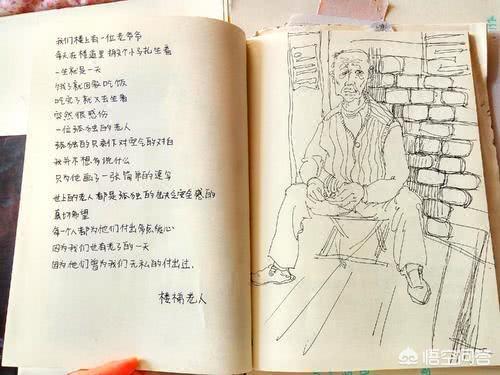 我们楼上有一位老爷爷
每天在楼道里搬个小马扎坐着
一坐就是一天
饿了就回家吃饭
吃完了就又去坐着
突然很感伤
一位孤独的老人
孤独的只剩下对空气的对白
我并不想多说什么
只为他画了一张简单的速写
世上的老人都是孤独的缺失安全感的
真切希望
每一个人都为他们付出多点暖心
因为我们也有老了的一天
因为他们曾为我们无私的付出过.
楼梯老人
悟空问答